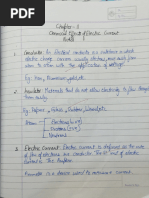 Chapter - 
Chemical Effects of Electric Current
Notes
1. Conductor: An Electrical conductor is a substance in which
electric charge carriers, usually electrons, move easily from
atom to atom with the application of voltage.
Eg: Iron, Aluminium, gold, etc.
2. Insulator: Materials that do not allow electricity to flow through
them easily.
Eg: Papers, Glass, Rubber,
Atom
Electrons
Neutrons
Protons
3. Electric Current: Electric current is defined as the rate
of flow of electrons in a conductor. The SI unit of electric
Current is the Ampere.
Ammeter is a device used to measure current.